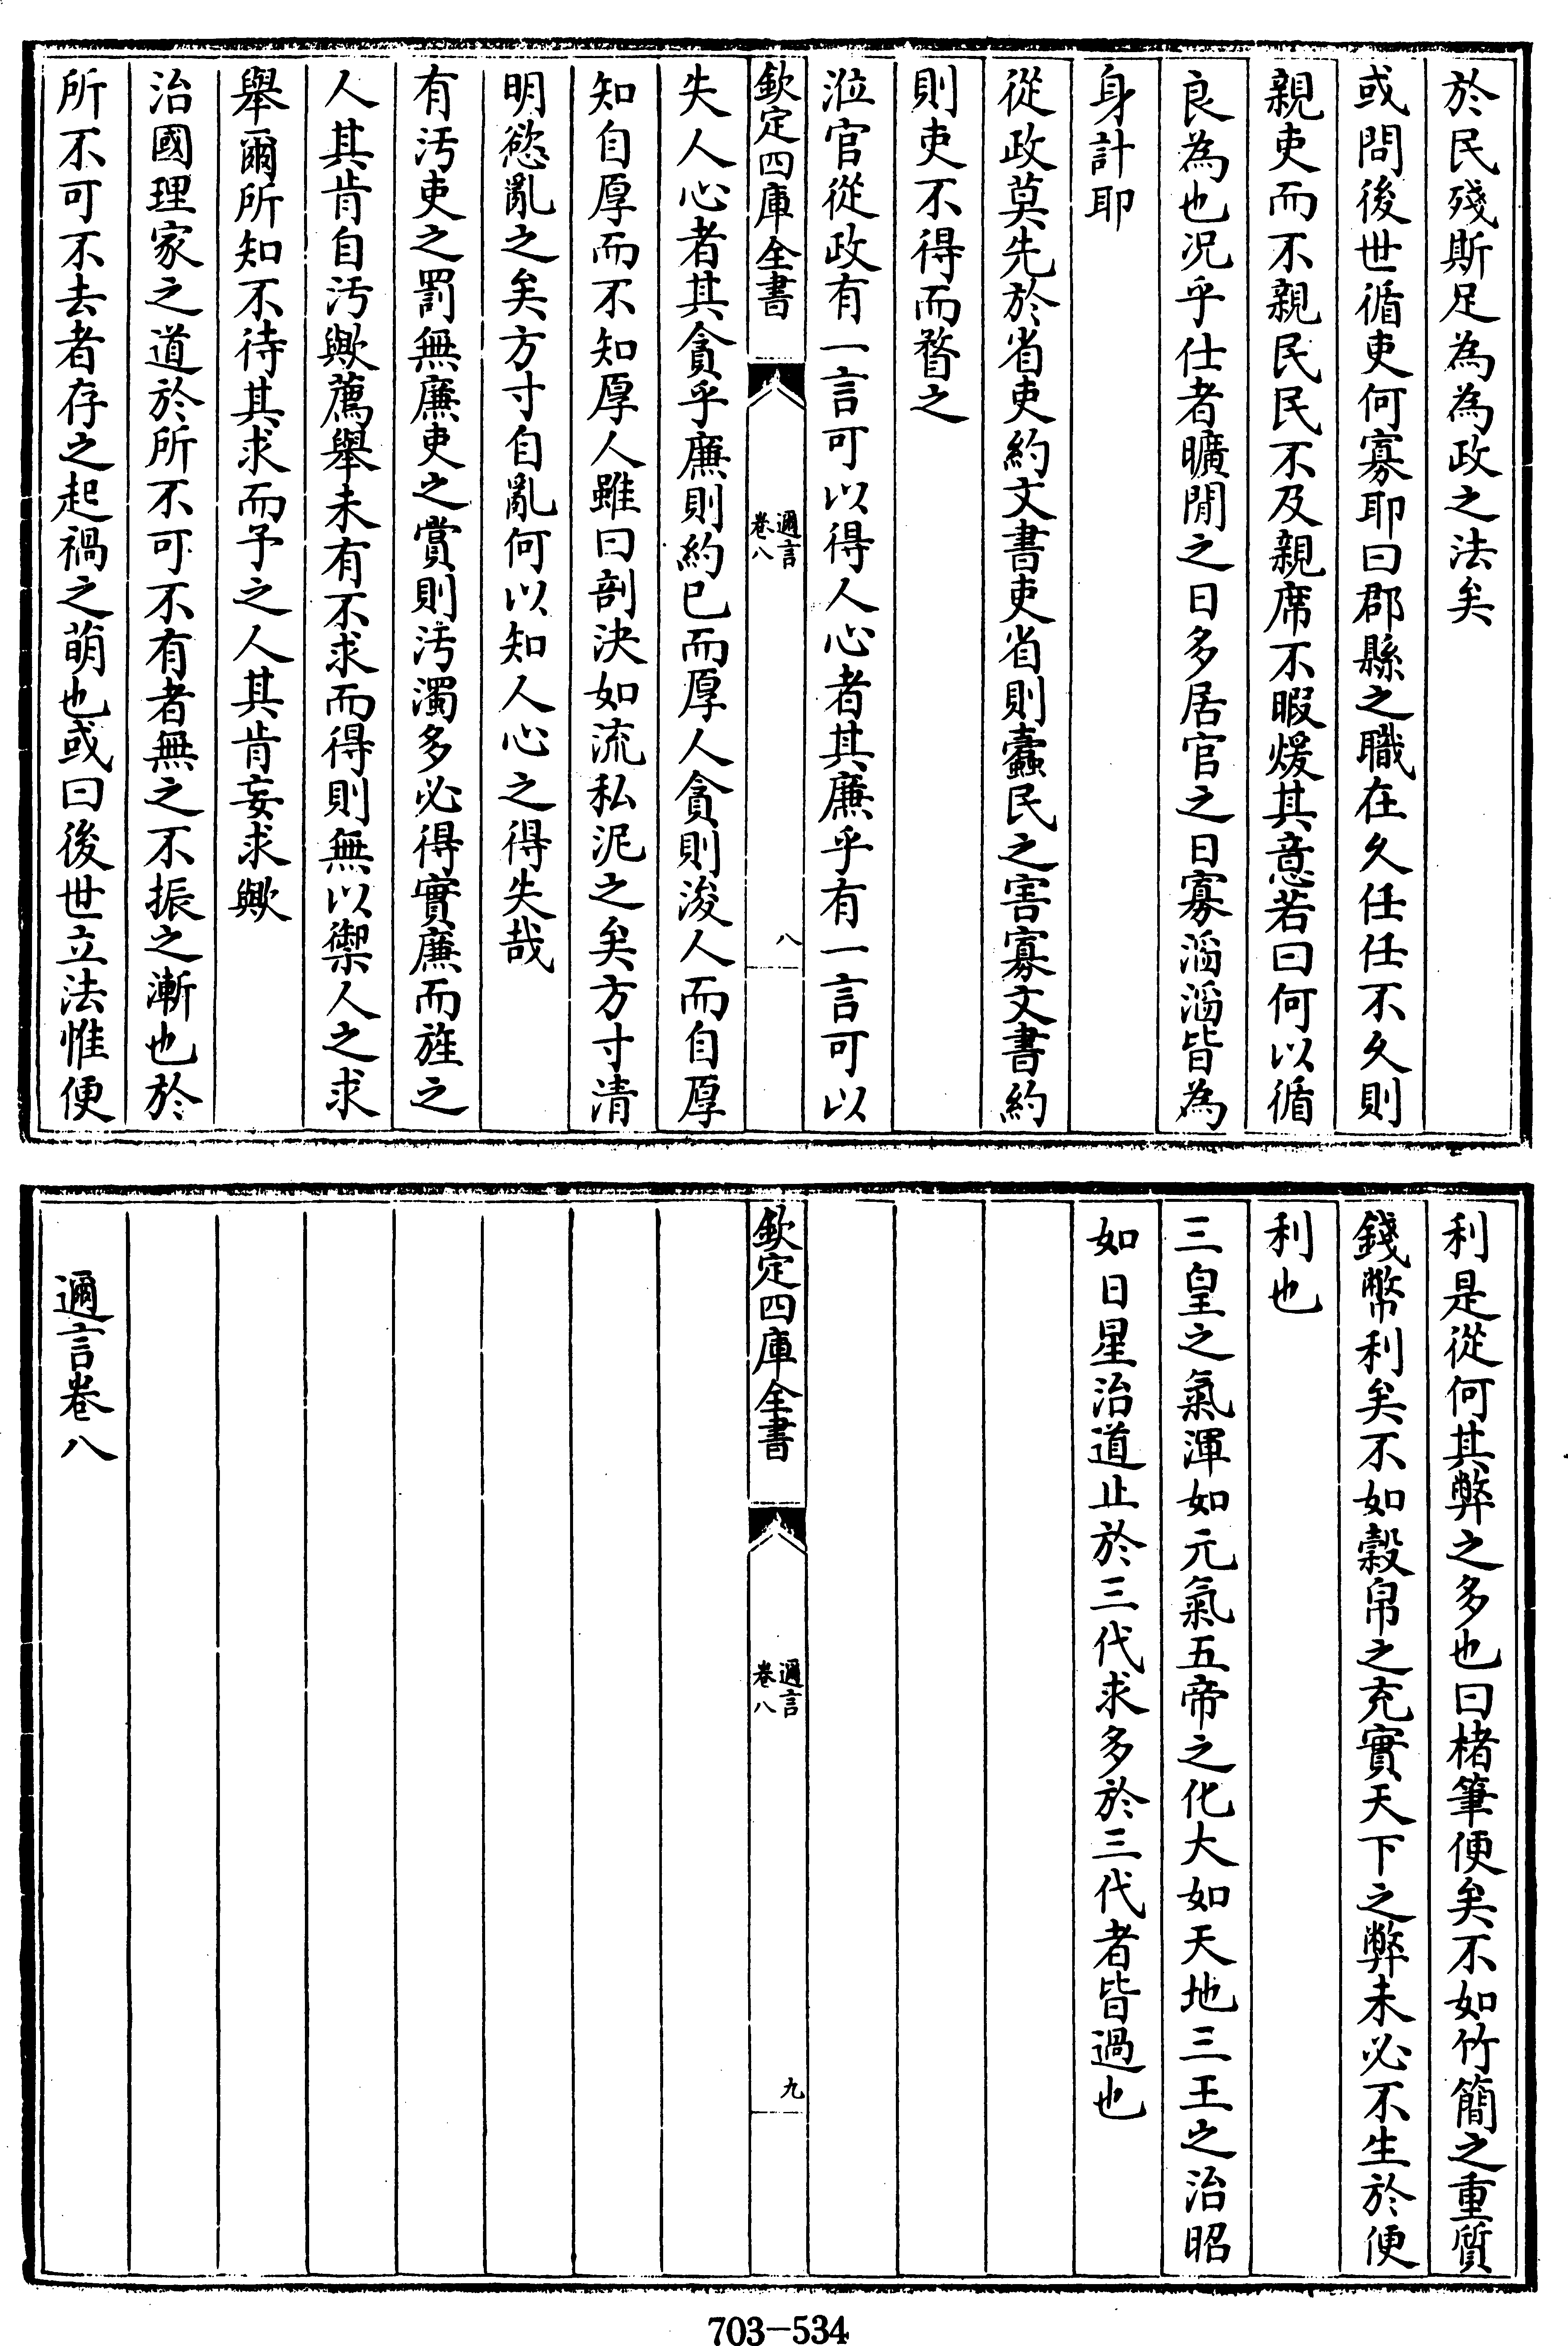 於民殘斯足為為政之法矣
或問後世循吏何寡耶曰郡縣之職在久任任不久則
親吏而不親民民不及親席不暇煖其意若曰何以循
良為也况乎仕者曠閒之日多居官之日寡滔滔皆為
身計耶
從政莫先於省吏約文書吏省則蠹民之害寡文書約
則吏不得而瞀之
涖官從政有一言可以得人心者其廉乎有一言可以
欽定四庫全書
邇言
卷八
八
失人心者其貪乎廉則約已而厚人貪則浚人而自厚
知自厚而不知厚人雖曰剖決如流私泥之矣方寸清
明慾亂之矣方寸自亂何以知人心之得失哉
有汚吏之罰無廉吏之賞則汚濁多必得實廉而旌之
人其肯自汚歟薦舉未有不求而得則無以禦人之求
舉爾所知不待其求而予之人其肯妄求歟
治國理家之道於所不可不有者無之不振之漸也於
所不可不去者存之起禍之萌也或曰後世立法惟便
利是從何其弊之多也曰楮筆便矣不如竹簡之重質
錢幣利矣不如穀帛之充實天下之弊未必不生於便
利也
三皇之氣渾如元氣五帝之化大如天地三王之治昭
如日星治道止於三代求多於三代者皆過也
欽定四庫全書
邇言
卷八
九
邇言卷八
703-534